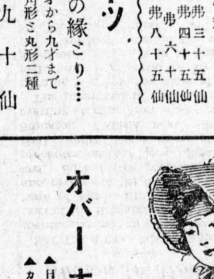 弗三十五仙
弗四十五仙
弗六十仙
弗八十五仙
ツ
の縁とり……
才から九才まで
角形と丸形二種
九十仙
オバー
▲日
▲